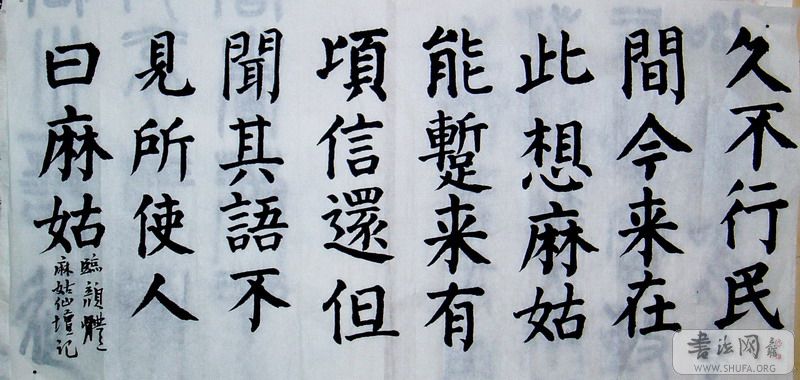 久不行民
間今来在
此想麻姑
能蹔来有
頃信還但
聞其語不
見所使人
曰麻姑
臨顔體
麻姑仙壇记
书法网
WWW.SHUFA.ORG